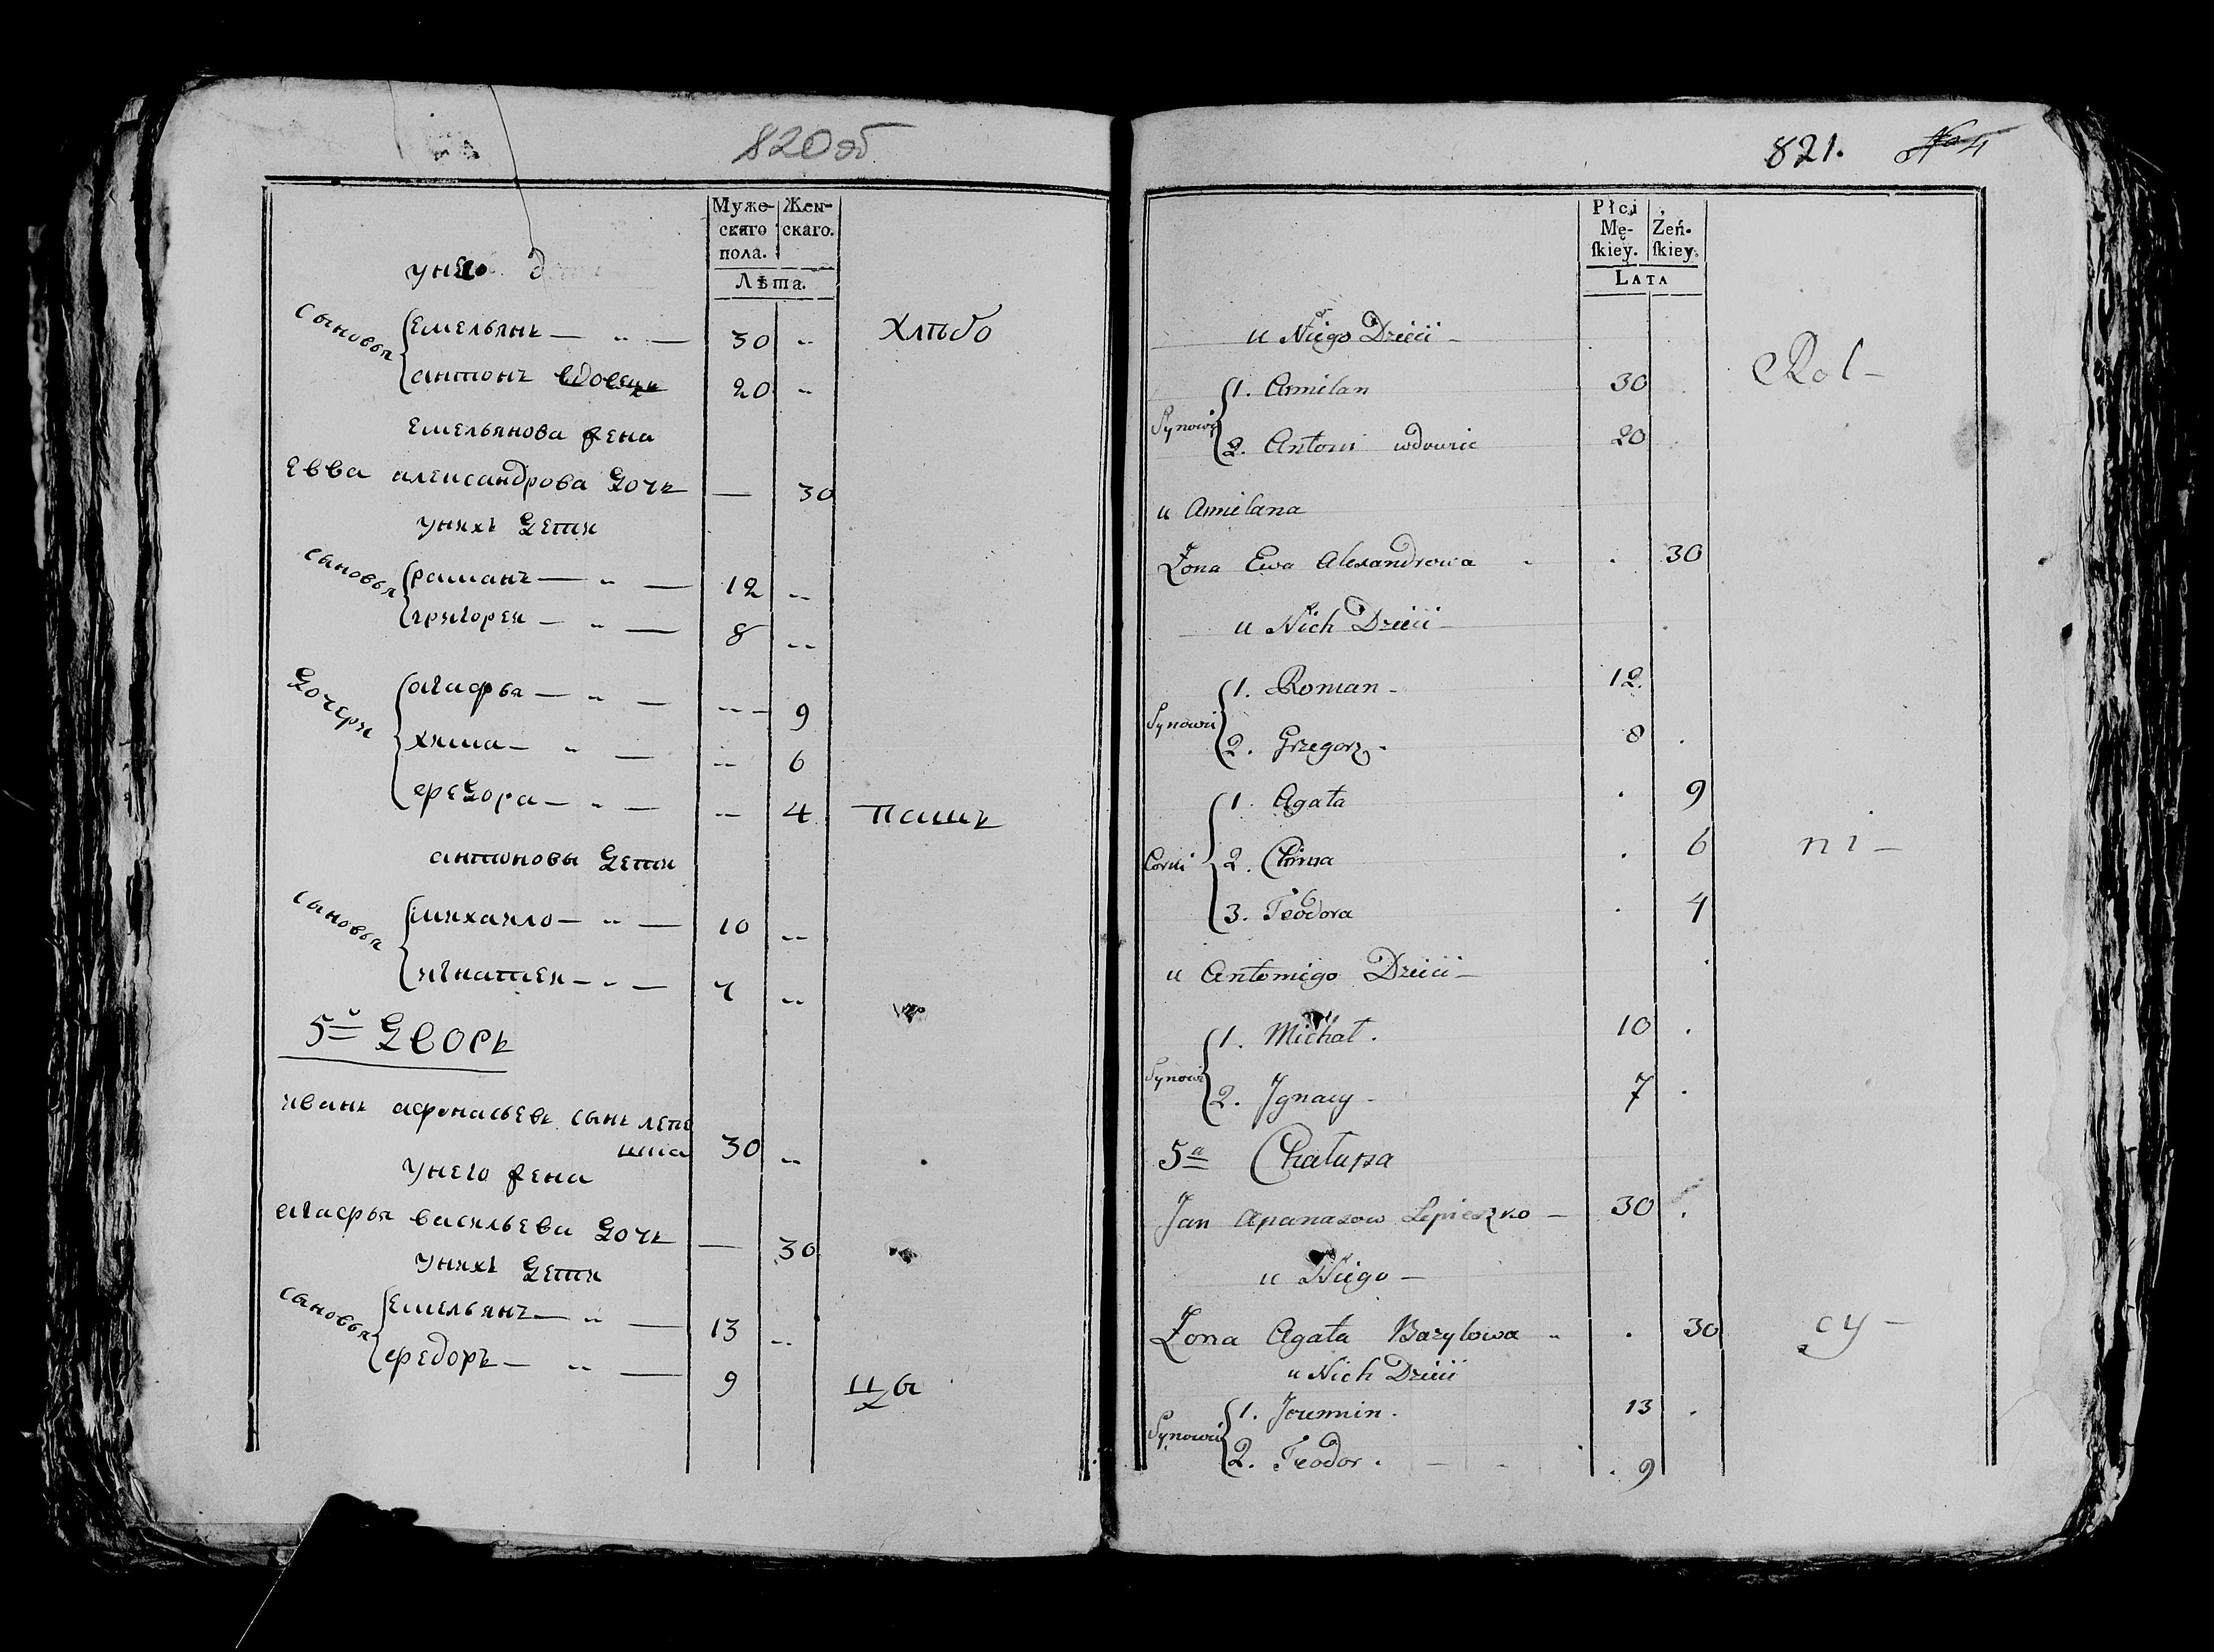 820об
Муже-
скаго
пола.
Жен-
скаго.
Лѣта.
унего дети
сыновья
Емельянъ — „ — 30 „
антонъ вдовецъ 20 „
Емельянова жена
Евва александрова дочь — 30
унихъ дети
сыновья
романъ — „ — 12 „
григореи — „ — 8 „
дочери
агафья — „ — „ 9
химa — „ — „ 6
федора — „ — „ 4
антоновы дети
сыновья
михаило — „ — 10 „
игнатеи — „ — 7 „
5й дворъ
иванъ афонасьевъ сынъ лепе
шка 30 „
унего жена
агафья васильева дочь — 30
унихъ дети
сыновья
Емельянъ — „ — 13 „
федоръ — „ — 9
хлѣбо
паш
цы
821. No 4
Płci
Mę-
ſkiey.
Żeń-
ſkiey.
LATA
u Niego Dzieci —
Synowi
1. Amilan 30
2. Antoni wdowic 20
u Amilana
Żona Ewa Alexandrowa . 30
u Nich Dzieci —
Synowi
1. Roman — 12.
2. Grzegorz — 8 .
Corki
1. Agata . 9
2. Chima . 6
3. Teodora . 4
u Antoniego Dzieci —
Synowi
1. Michał. 10 .
2. Jgnacy — 7 .
5a Chałupa
Jan Apanasow Lepieszko — 30 .
u Niego —
Żona Agata Bazylowa „ . 30
u Nich Dzieci
Synowi
1. 13 .
2. Teodor. — . 9
Rol —
ni —
cy —